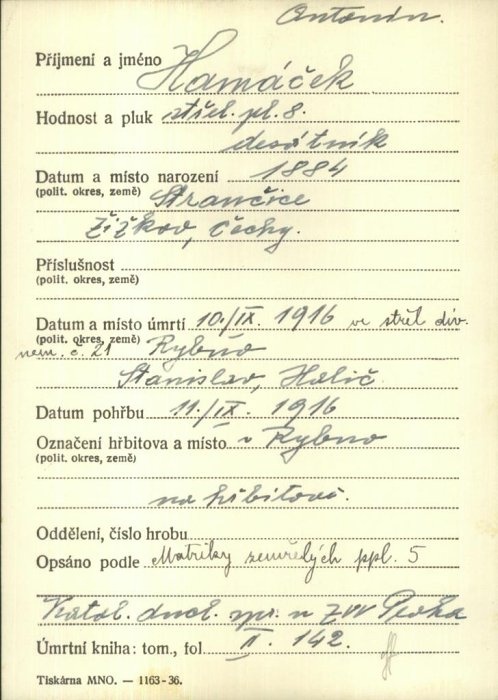 Antonín.
Příjmení a jméno Hamáček
Hodnost a pluk střel. pl. 8.
desátník
Datum a místo narození 1884
(polit. okres, země) Strančice
Žižkov, Čechy.
Příslušnost
(polit. okres, země)
Datum a místo úmrtí 10./IX. 1916 ve střel. div.
(polit. okres, země) nem. č. 21 Rybno
Stanislav, Halič
Datum pohřbu 11./IX. 1916
Označení hřbitova a místo v Rybno
(polit. okres, země)
na hřbitově.
Oddělení, číslo hrobu
Opsáno podle Matriky zemřelých ppl. 5
Katol. duch. spr. u ZVV Praha
Úmrtní kniha: tom., fol. II. 142.
Tiskárna MNO. — 1163-36.